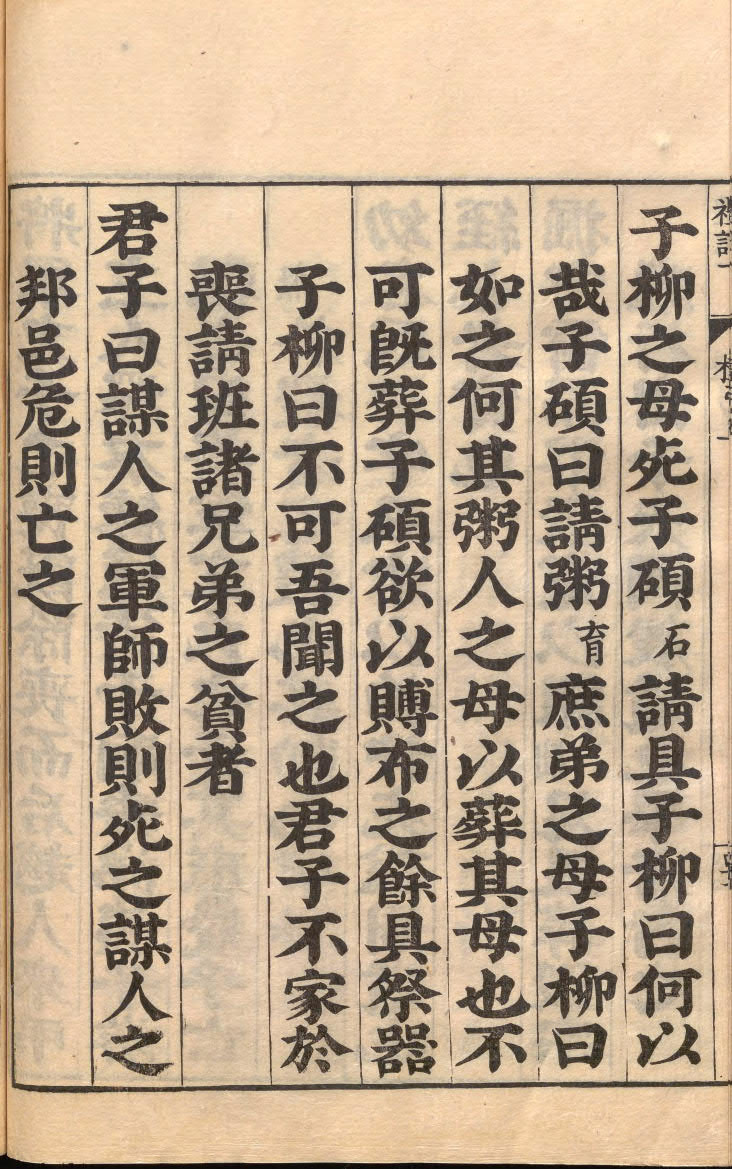 子柳之母死子碩石請具子柳曰何以
哉子碩曰請粥育庶弟之母子柳曰
如之何其粥人之母以葬其母也不
可旣葬子碩欲以賻布之餘具祭器
子柳曰不可吾聞之也君子不家於
喪請班諸兄弟之貧者
君子曰謀人之軍師敗則死之謀人之
邦邑危則亡之